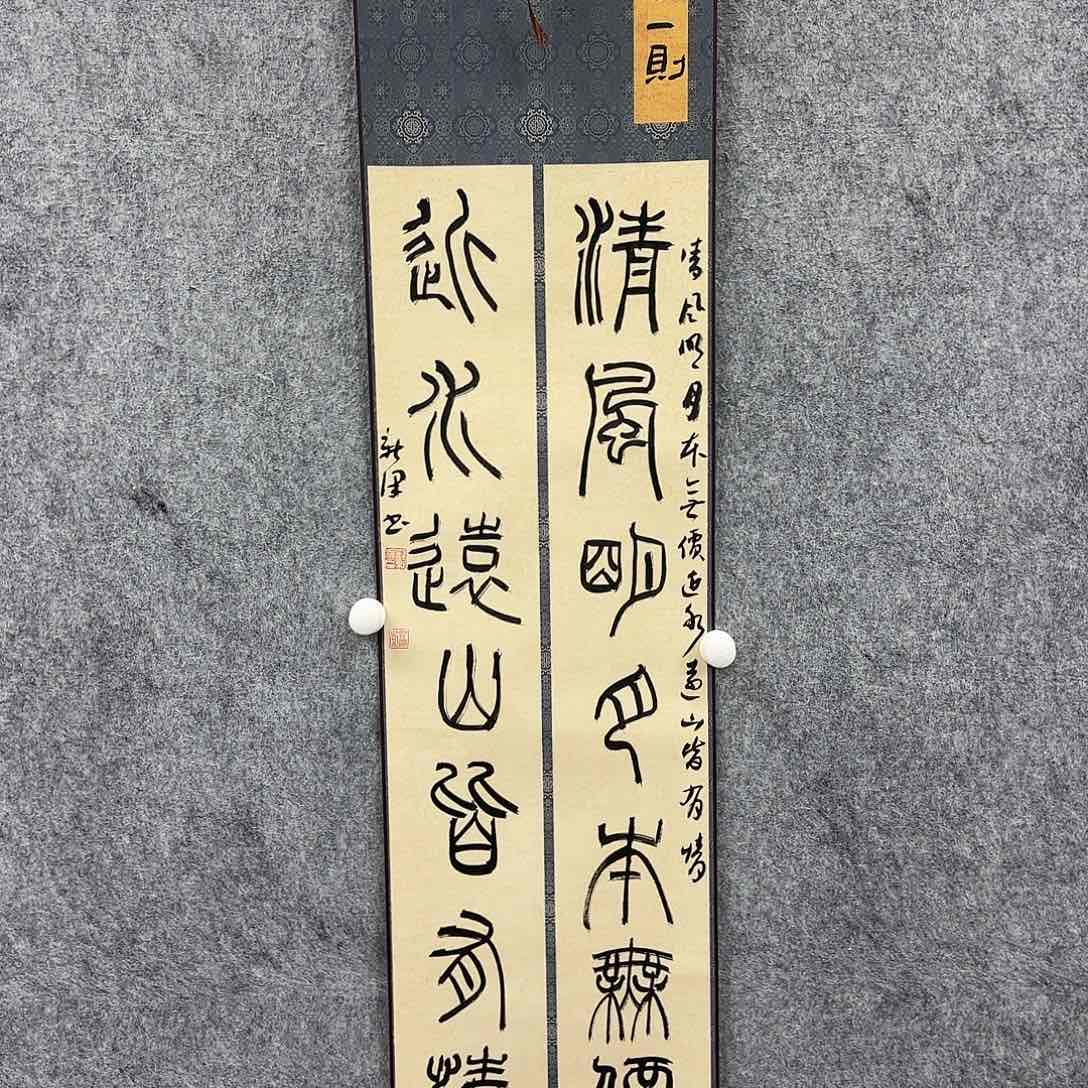 一則
清風明月本無價近水遠山皆有情
清風明月本無價
近水遠山皆有情